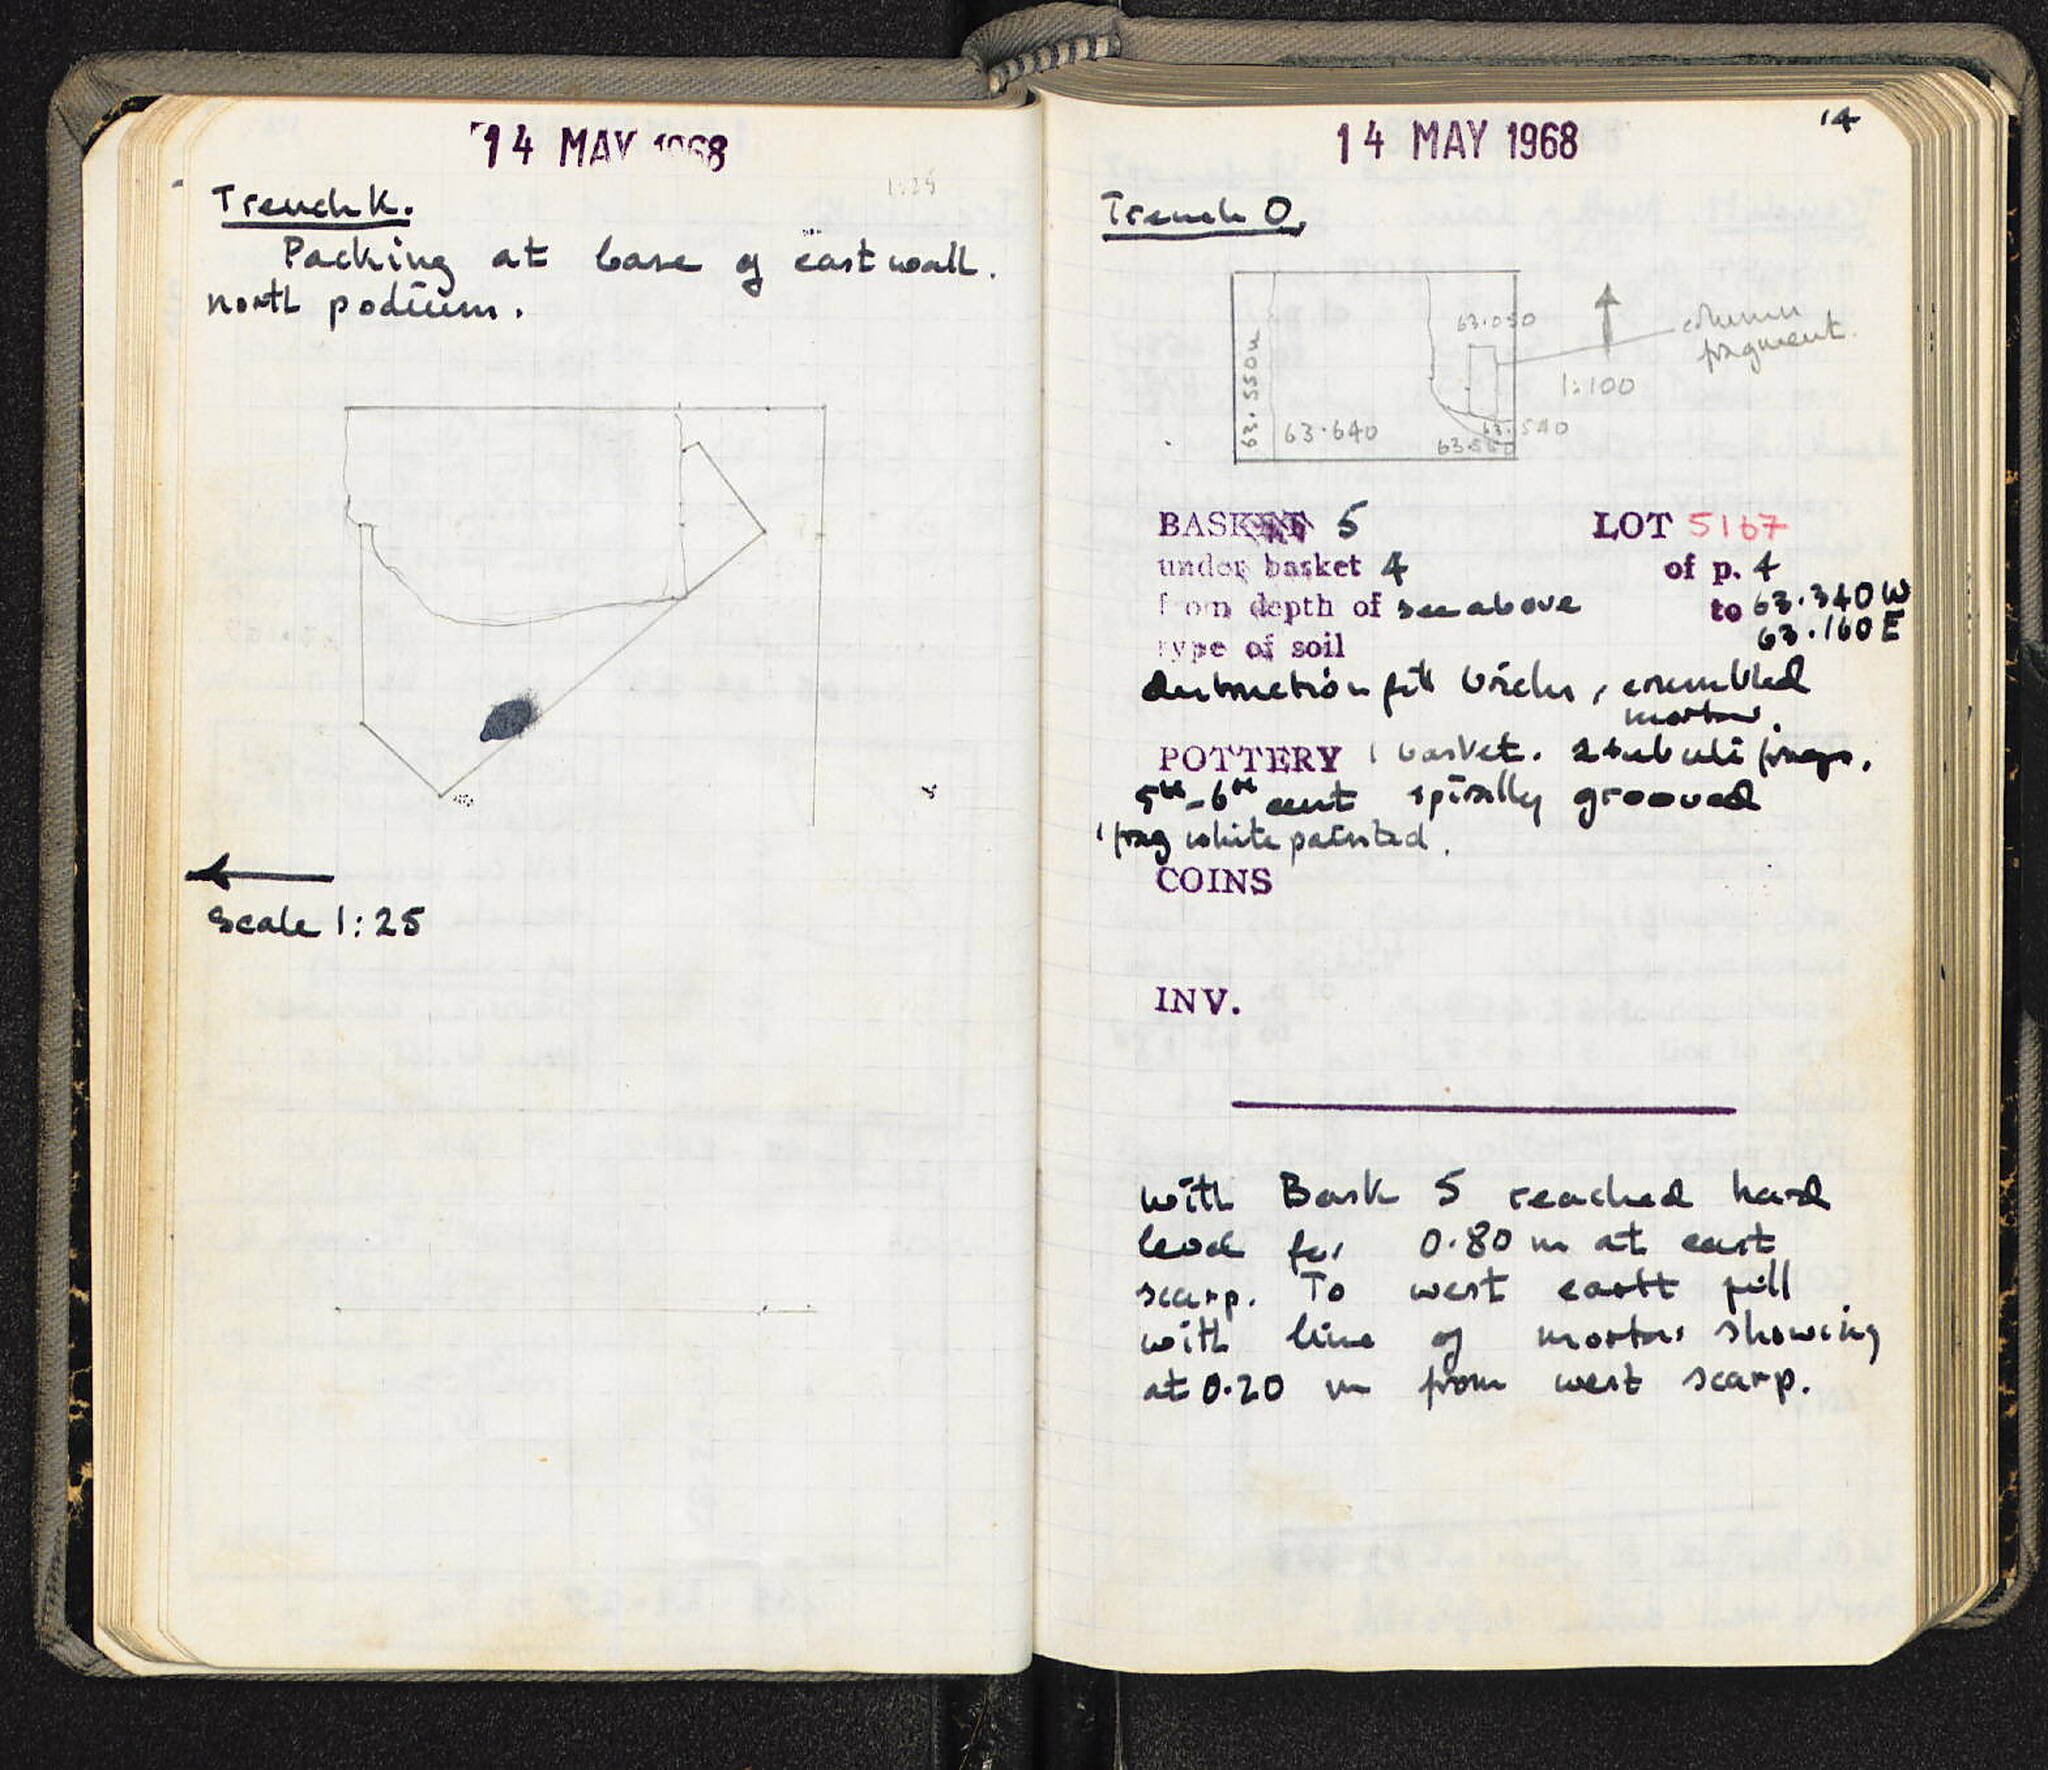 14 MAY 1968
1:25
Trench K.
Packing at base of east wall.
north podium.
Scale 1:25
14
14 MAY 1968
Trench O.
63.550m
63.640
63.050
63.540
63.560
column
fragment.
1:100
BASKET 5 LOT 5167
under basket 4 of p. 4
from depth of see above to 63.340 W
63.160 E
type of soil
destruction fill bricks, crumbled
mortar.
POTTERY 1 basket. 2 tubuli frags.
5th-6th cent spirally grooved
1 frag white painted.
COINS
INV.
with Bask 5 reached hard
level for 0.80 m at east
scarp. To west earth fill
with line of mortar showing
at 0.20 m from west scarp.